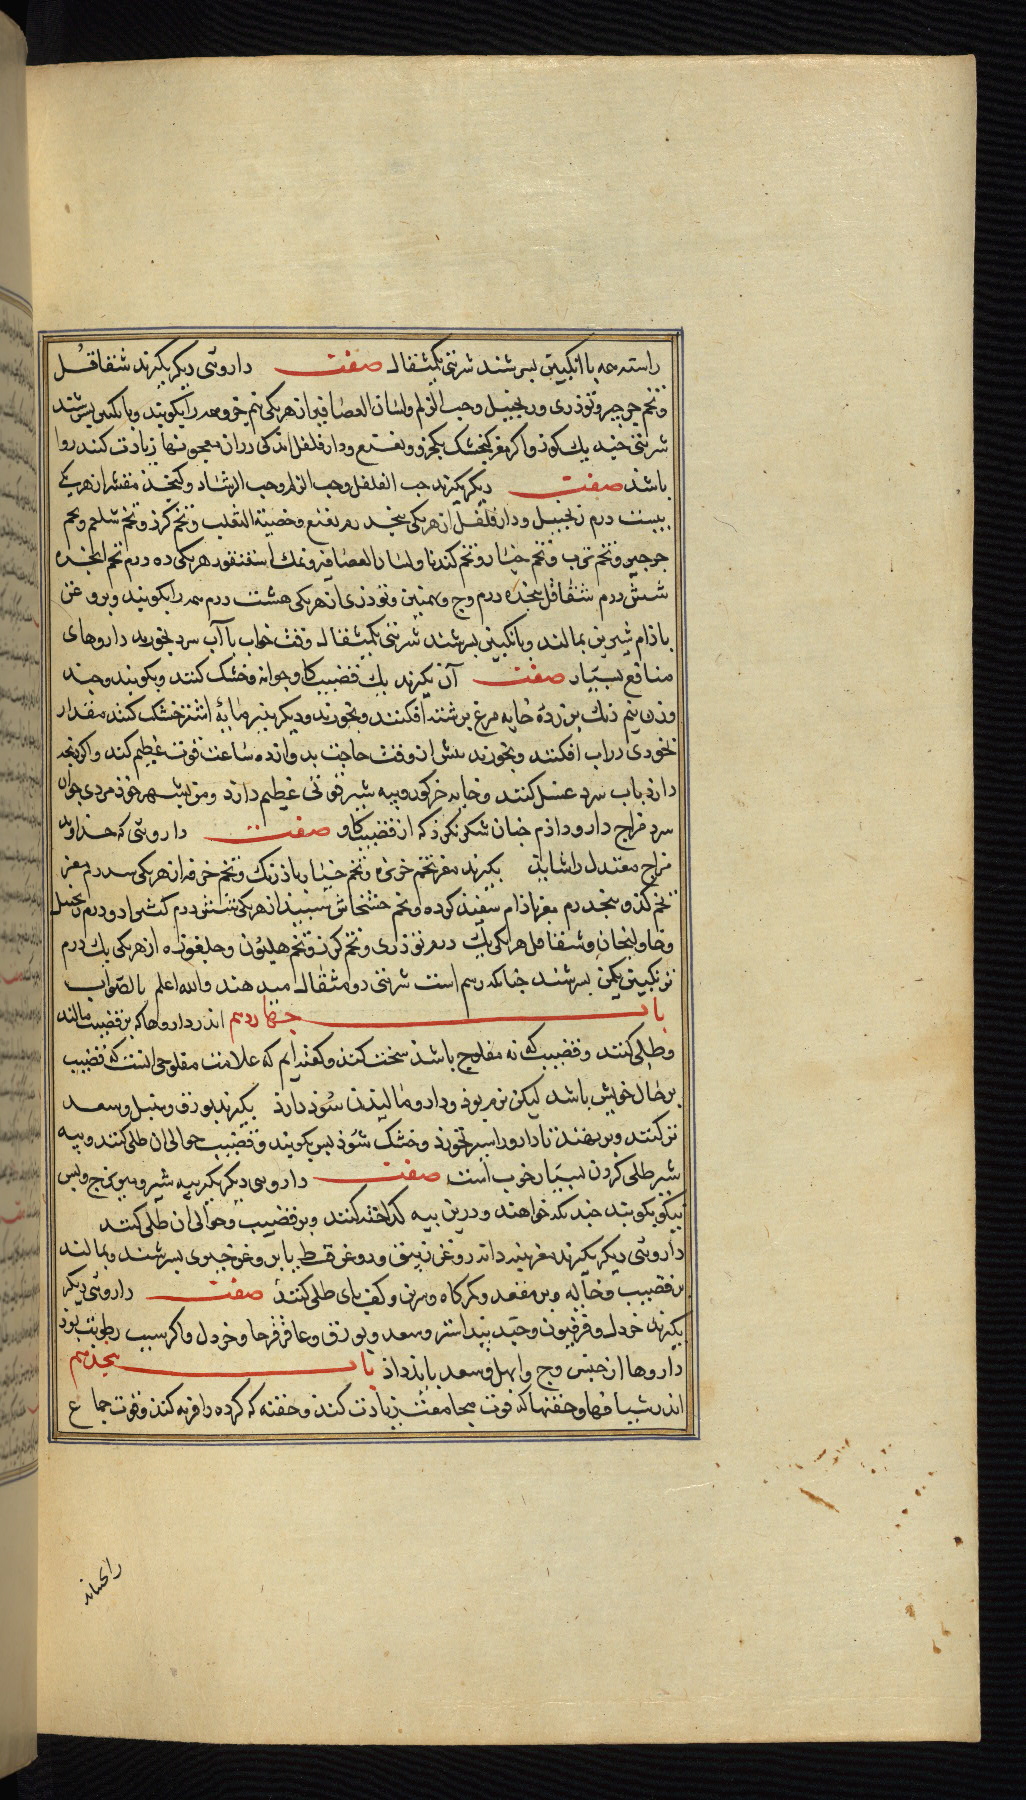 راسته همه با انگبین بسرشند شربتی یکمثقال صفت داروئی دیگر بگیرند شقاقل
و تخم جرجیر و توذری و زنجبیل و حب الزلم و لسان العصافیر از هر یکی نیم جزو همه را بکوبند و بانگبین بسرشند
شربتی چند یک کوز و اگر مغز کنجشک یکجزو و نعنع و دارفلفل اندکی در ان معجونها زیادت کنند روا
باشد صفت دیگر بگیرند حب الفلفل و حب الزلم و حب الرشاد و کنجذ مقشر از هر یکی
بیست درم زنجبیل و دارفلفل از هر یکی پنج درم نعنع و خصیة الثعلب و تخم کزر و تخم شلغم و تخم
جرجیر و تخم ترب و تخم خیار و تخم کندنا و لسان العصافیر و نمک اسقنقور هر یکی ده درم تخم انجذه
شش درم شقاقل پنجذه درم وج و بهمنین و توذری از هر یکی هشت درم همه را بکوبند و بروغن
باذام شیرین بمالند و بانگبین بسرشند شربتی یکمثقال وقت خواب با آب سرد بخورند داروهای
منافع بسیار صفت آن بگیرند یک قضیب کاو جوانه و خشک کنند و بکوبند و چند
وزن نیم دنک بر زرده خایه مرغ برشته افکنند و بخورند و دیگر پنیرمایه اشتر خشک کنند مقدار
نخودی در اب افکنند و بخورند بیش از وقت حاجت بدو انزده ساعت قوت عظیم کند و اگر
دارد باب سرد غسل کنند و خایه خرکور و پیه شیر قوتی عظیم دارد و من بشهر خوذ مردی جوان
سرد مزاج دارو داذم چنان شکر نکرد که از قضیب کاو صفت داروئی که خداوند
مزاج معتدل را شاید بگیرند مغز تخم خربزه و تخم خیار و باذرنک و تخم خرفه از هر یکی سه درم مغز
تخم کذو پنجدرم مغز باذام سفیذ کرده و تخم خشخاش سپیذ از هر یکی شش درم کثیرا دو درم زنجبیل
و خاولنجان و شقاقل هر یکی یک درم توذری و تخم کزر و تخم هلیون و جلغوزه از هر یکی یک درم
ترنکبین یکمن بسرشند چنانکه رسم است شربتی دو مثقال میدهند والله اعلم بالصواب
باب چهاردهم اندر داروها که بر قضیب مالند
و طلی کنند و قضیب که نه مفلوج باشذ سخت کند و کفته ایم که علامت مفلوجی انست که قضیب
بر حال خویش باشد لیکن نرم بوذ و دارو مالیذن سوذ دارذ بگیرند بورق و سنبل و سعد
تر کنند و بر نهند تا دارو را سیر بخورذ و خشک شوذ پس بکوبند و قضیب حوالی ان طلی کنند و پیه
شیر طلی کردن بسیار خوب است صفت داروئی دیگر بگیرند پیه شیر و میویزج و بس
نیکو بکوبند چندنکه خواهند و درین پیه کداخته کنند و بر قضیب و حوالی ان طلی کنند
داروئی دیگر بگیرند مغز پنبه دانه روغن زیبق و روغن قسط یا بروغن خیروی بسرشند و بمالند
بر قضیب و خایه و بر مقعد و کمرکاه و سرین و کف پای طلی کنند صفت داروئی دیگر
بگیرند خردل و فرفیون و جندبیداستر و سعد و بورق و عاقرقرحا و خردل و اگر سبب رطوبت بوذ
داروها از جنس وج و ابهل و سعد بایذ داذ باب پنجدهم
اندر شیافها و حقنها که قوت مجامعت زیادت کند و حقنه که کرده را فربه کند و قوت جماع